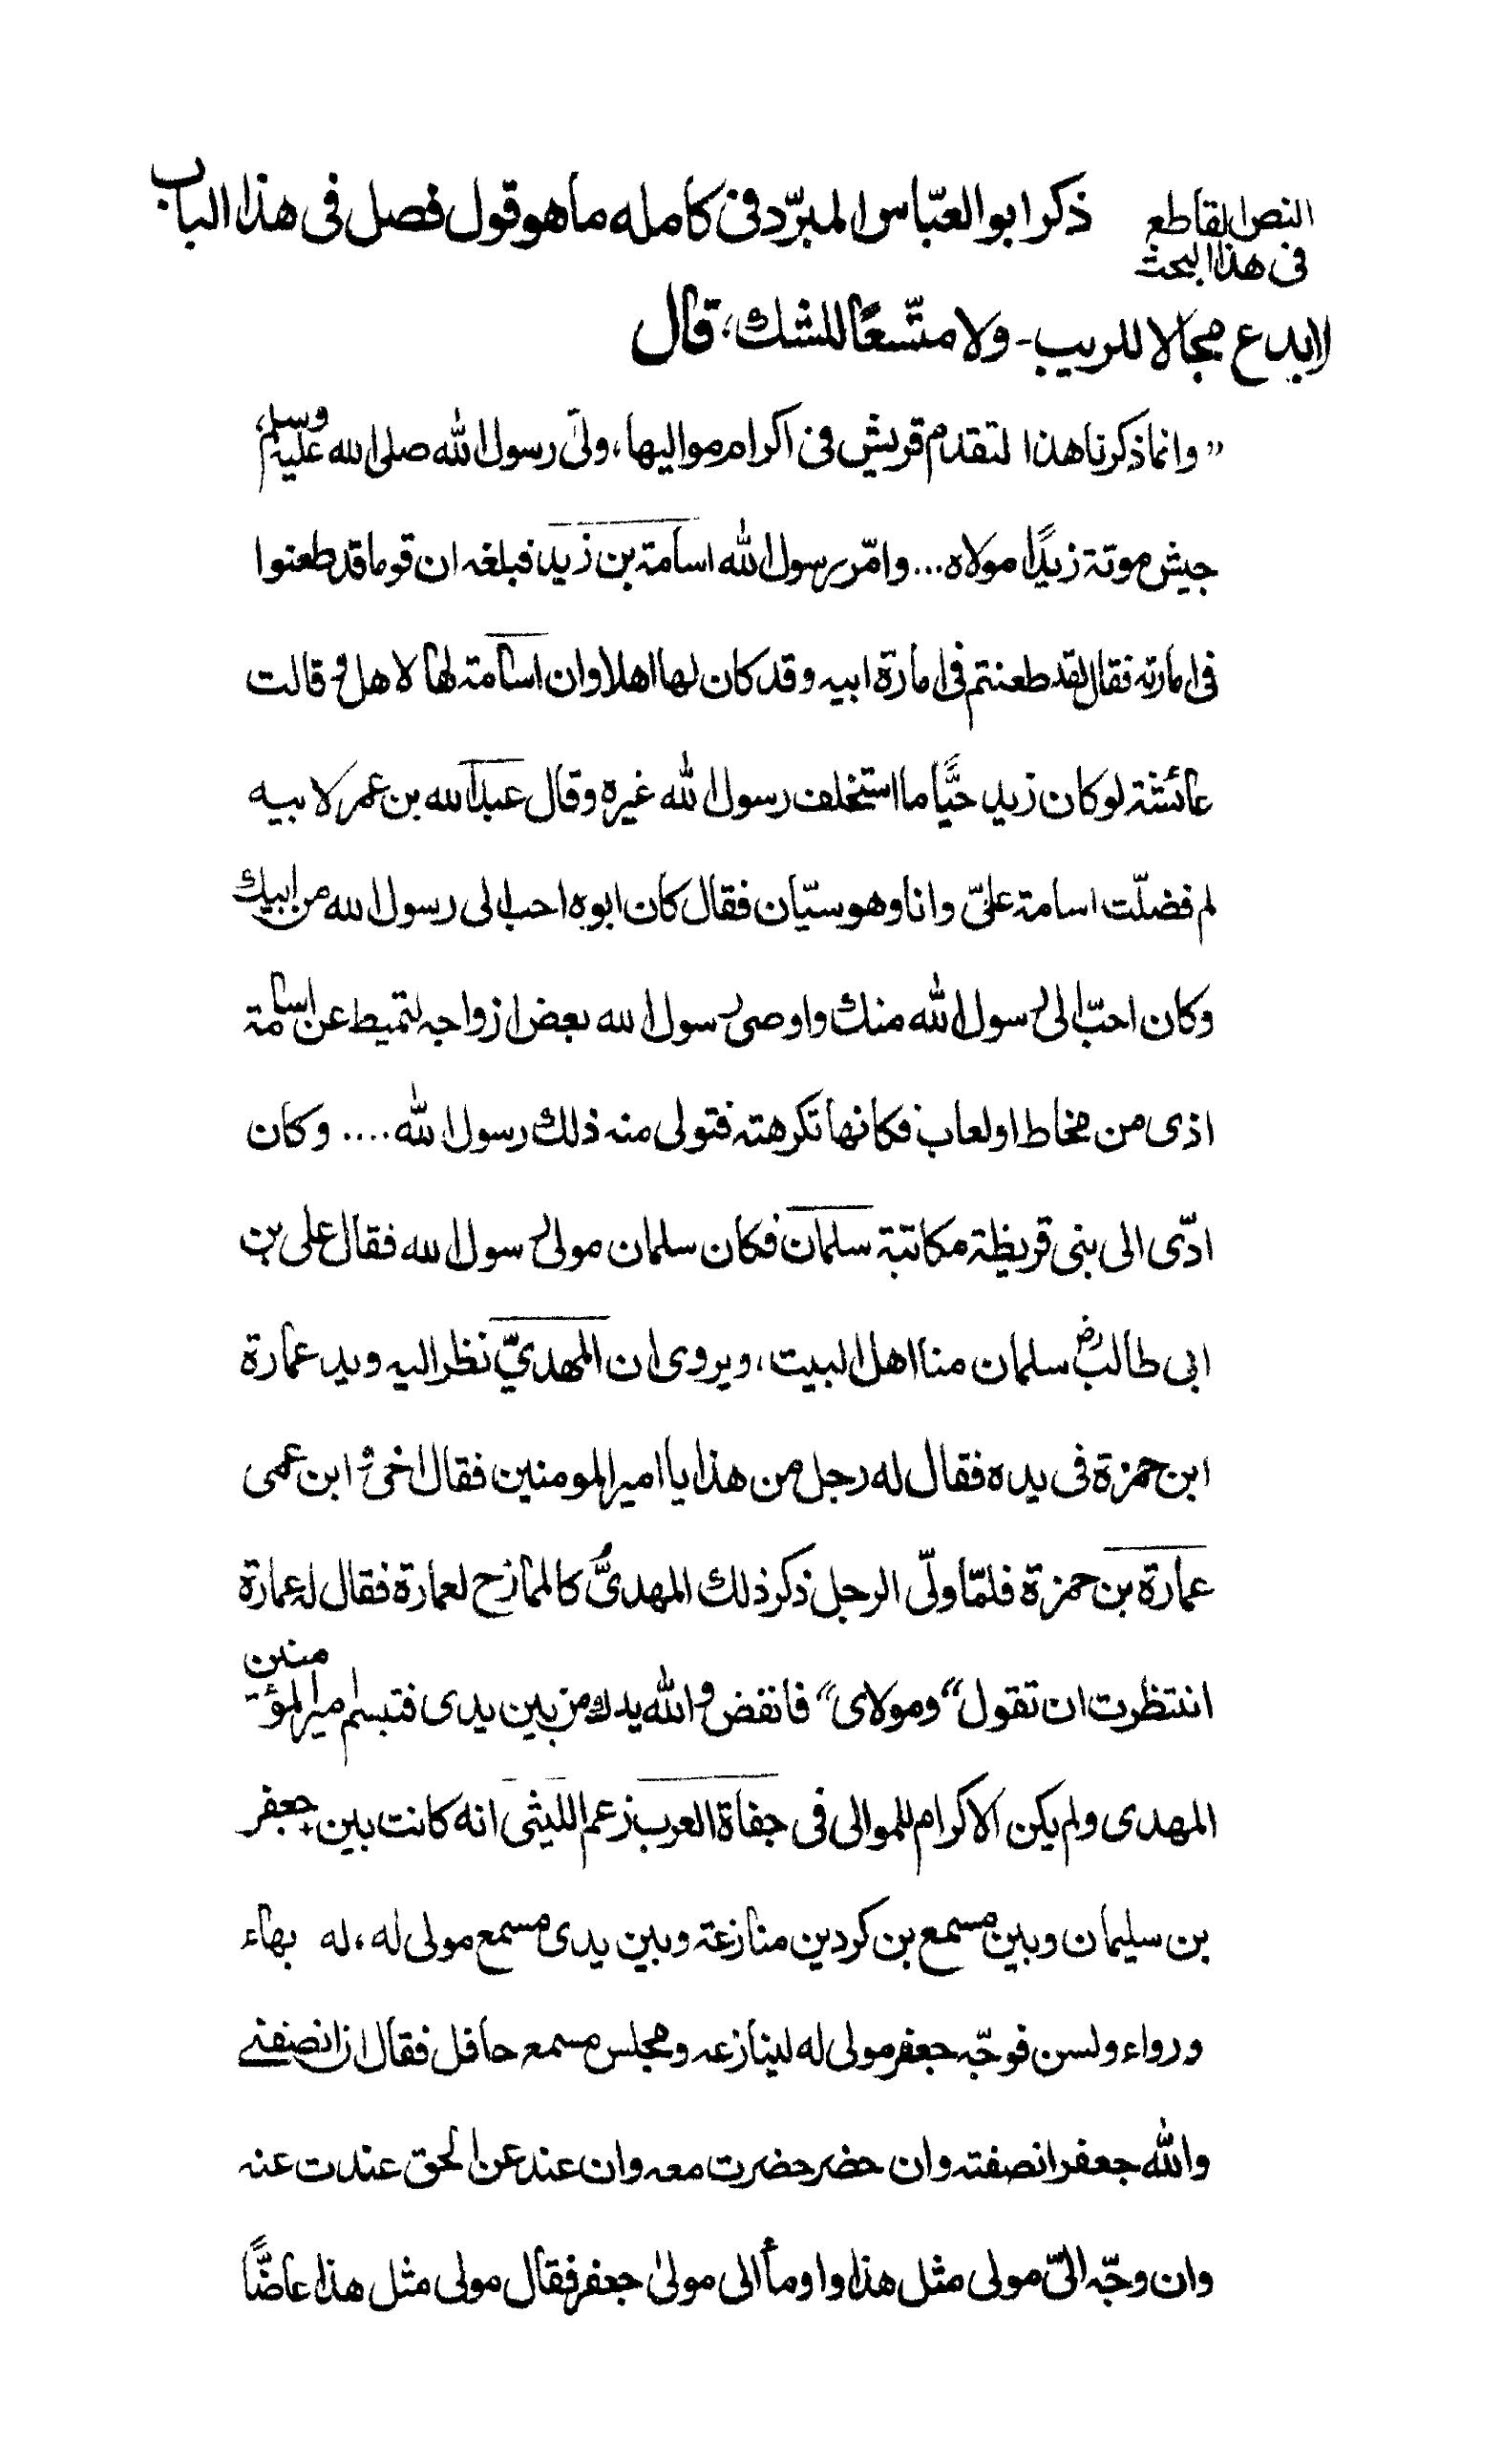 النص القاطع
فى هذا البحث
ذكر ابو العبّاس المبرّد فى كامله ما هو قول فصل فى هذا الباب
لا يدع مجالا للريب - ولا متّسعًا للشك، قال
"وانما ذكرنا هذا لتقدم قريش فى اكرام مواليها، ولّى رسول الله صلى الله عليه وسلم
جيش موتة زيدًا مولاه... وامّر رسول الله اسامة بن زيد فبلغه ان قوما قد طعنوا
فى امارته فقال لقد طعنتم فى امارة ابيه وقد كان لها اهلا وان اسامة لها لاهل، وقالت
عائشة لو كان زيد حيًّا ما استخلف رسول الله غيره وقال عبد الله بن عمر لابيه
لم فضلّت اسامة علىّ وانا وهو سيّان فقال كان ابوه احب الى رسول الله من ابيك
وكان احبّ الى رسول الله منك واوصى رسول الله بعض ازواجه لتميط عن اسامة
اذى من مخاط او لعاب فكانها تكرهته فتولى منه ذلك رسول الله .... وكان
ادّى الى بنى قريظة مكاتبة سلمان فكان سلمان مولى رسول الله فقال على بن
ابى طالبؓ سلمان منا اهل البيت، ويروى ان المهدىّ نظر اليه ويد عمارة
ابن حمزة فى يده فقال له رجل من هذا يا امير المومنين فقال اخى وابن عمى
عمارة بن حمزة فلمّا ولّى الرجل ذكر ذلك المهدىُّ كالممازح لعمارة فقال له عمارة
انتظرت ان تقول "ومولاى" فانفض والله يدك من بين يدى فتبسم امير المؤمنين
المهدى ولم يكن الاكرام للموالى فى جفاة العرب زعم الليثى انه كانت بين جعفر
بن سليمان وبين مسمع بن كردين منازعة وبين يدى مسمع مولى له، له بهاء
ورواء ولسن فوجّه جعفر مولى له لينازعه ومجلس مسمع حافل فقال ان انصفنى
والله جعفر انصفته وان حضر حضرت معه وان عند عن الحق عندت عنه
وان وجّه الىّ مولى مثل هذا واومأ الى مولىٰ جعفر فقال مولى مثل هذا عاضًّا